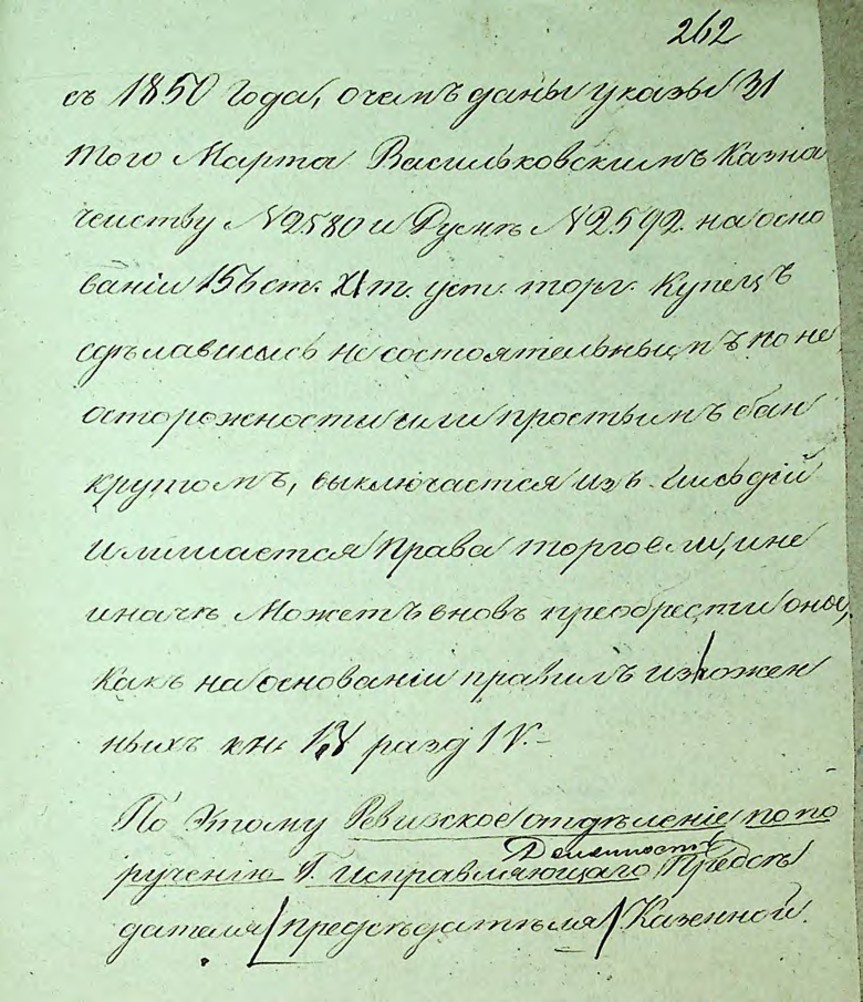 262
съ 1850 года, о чемъ даны указы 31
того Марта Васильковскимъ Казна
чеиству № 2580 и Думѣ № 2592. на осно
ваніи 156 ст. XI т. уст. торг. Купецъ
сдѣлавшись несостоятельнымъ по не
осторожности или простымъ бан
крутомъ, выключается изъ гильдій
и лишается права торговли, и не
иначе можетъ вновь преобрести оное,
какъ на основаніи правилъ изложен
ныхъ кн. разд IV.-
По этому Ревизское отдѣленіе по по
Должность
рученію Г. Исправляющаго Предсѣ
дателя / предсѣдателя / Казенной